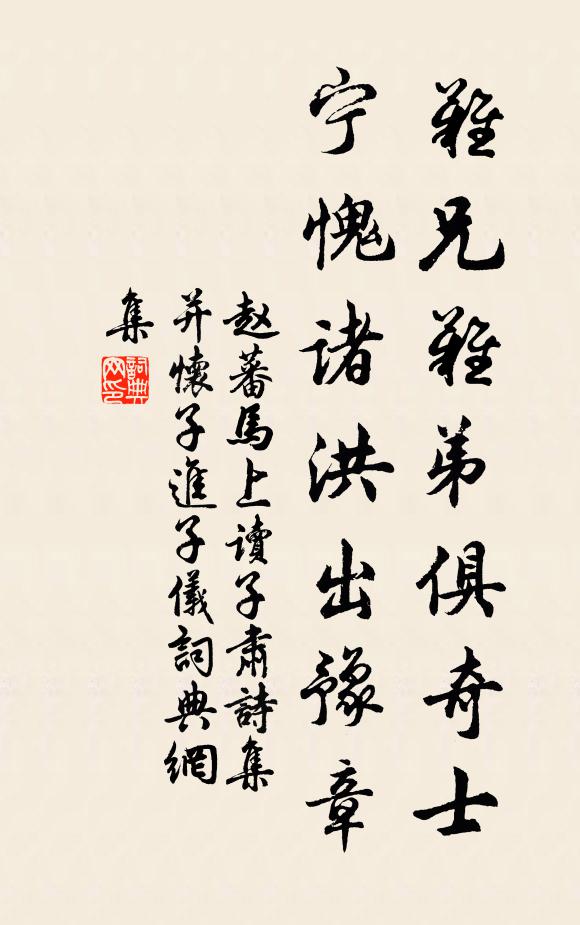 難兄難弟俱奇士
宁愧诸洪出豫章
赵蕃馬上讀子肅詩集
并懷子進子儀詞典網
集
詞典
网印